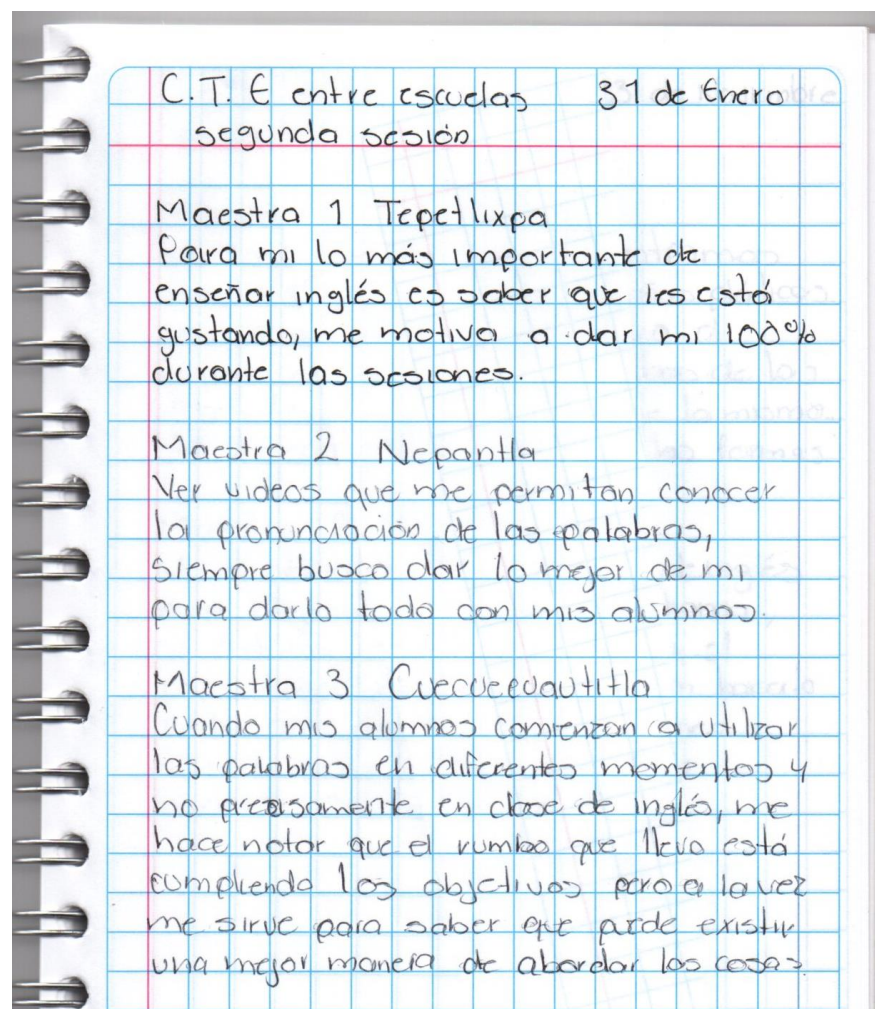 C.T. E entre escuelas 31 de Enero
segunda sesión
Maestra 1 Tepetlixpa
Para mi lo más importante de
enseñar inglés es saber que les está
gustando, me motiva a dar mi 100%
durante las sesiones.
Maestra 2 Nepantla
Ver videos que me permitan conocer
la pronunciación de las palabras,
siempre busco dar lo mejor de mi
para darlo todo con mis alumnos.
Maestra 3 Cuecuecuautitla
Cuando mis alumnos comienzan a utilizar
las palabras en diferentes momentos y
no precisamente en clase de inglés, me
hace notar que el rumbo que llevo está
cumpliendo los objetivos pero a la vez
me sirve para saber que puede existir
una mejor manera de abordar las cosas.